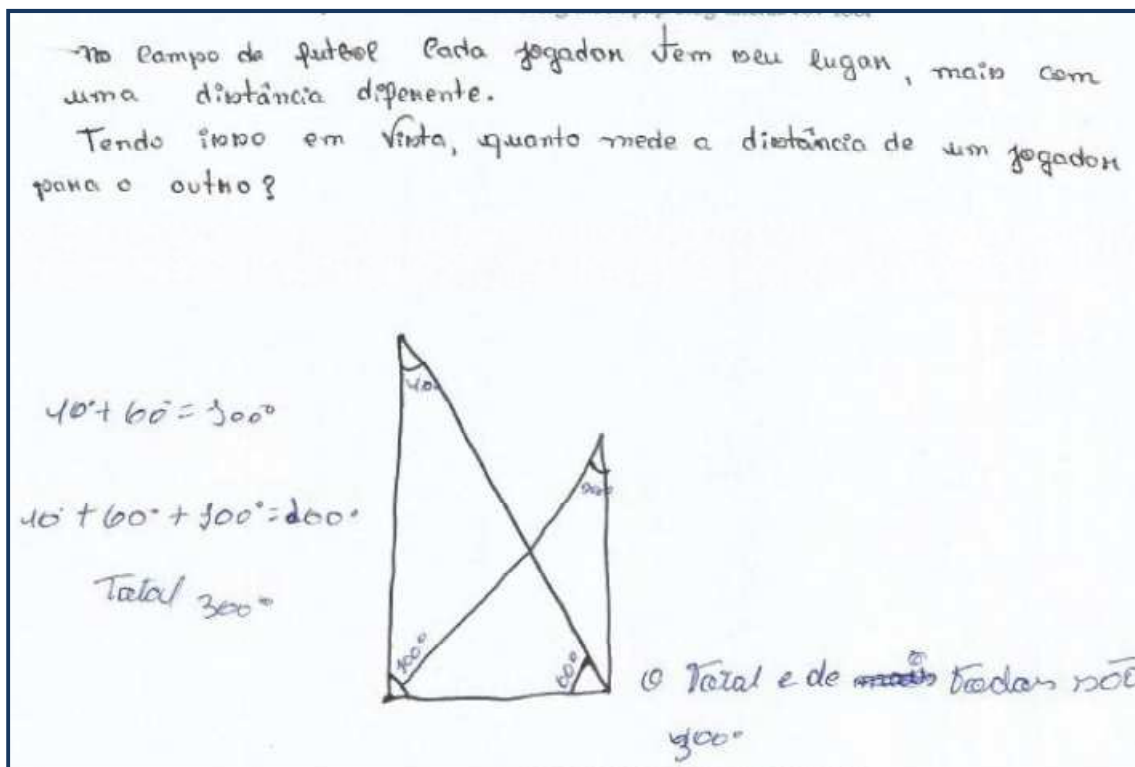 no campo de futebol cada jogador tem seu lugar, mais com
uma distância diferente.
Tendo isso em vista, quanto mede a distância de um jogador
para o outro?
40°
40°+ 60° = 100°
40° + 60° + 100° = 200°
Total 300°
100°
60°
O Total e de todas são
300°